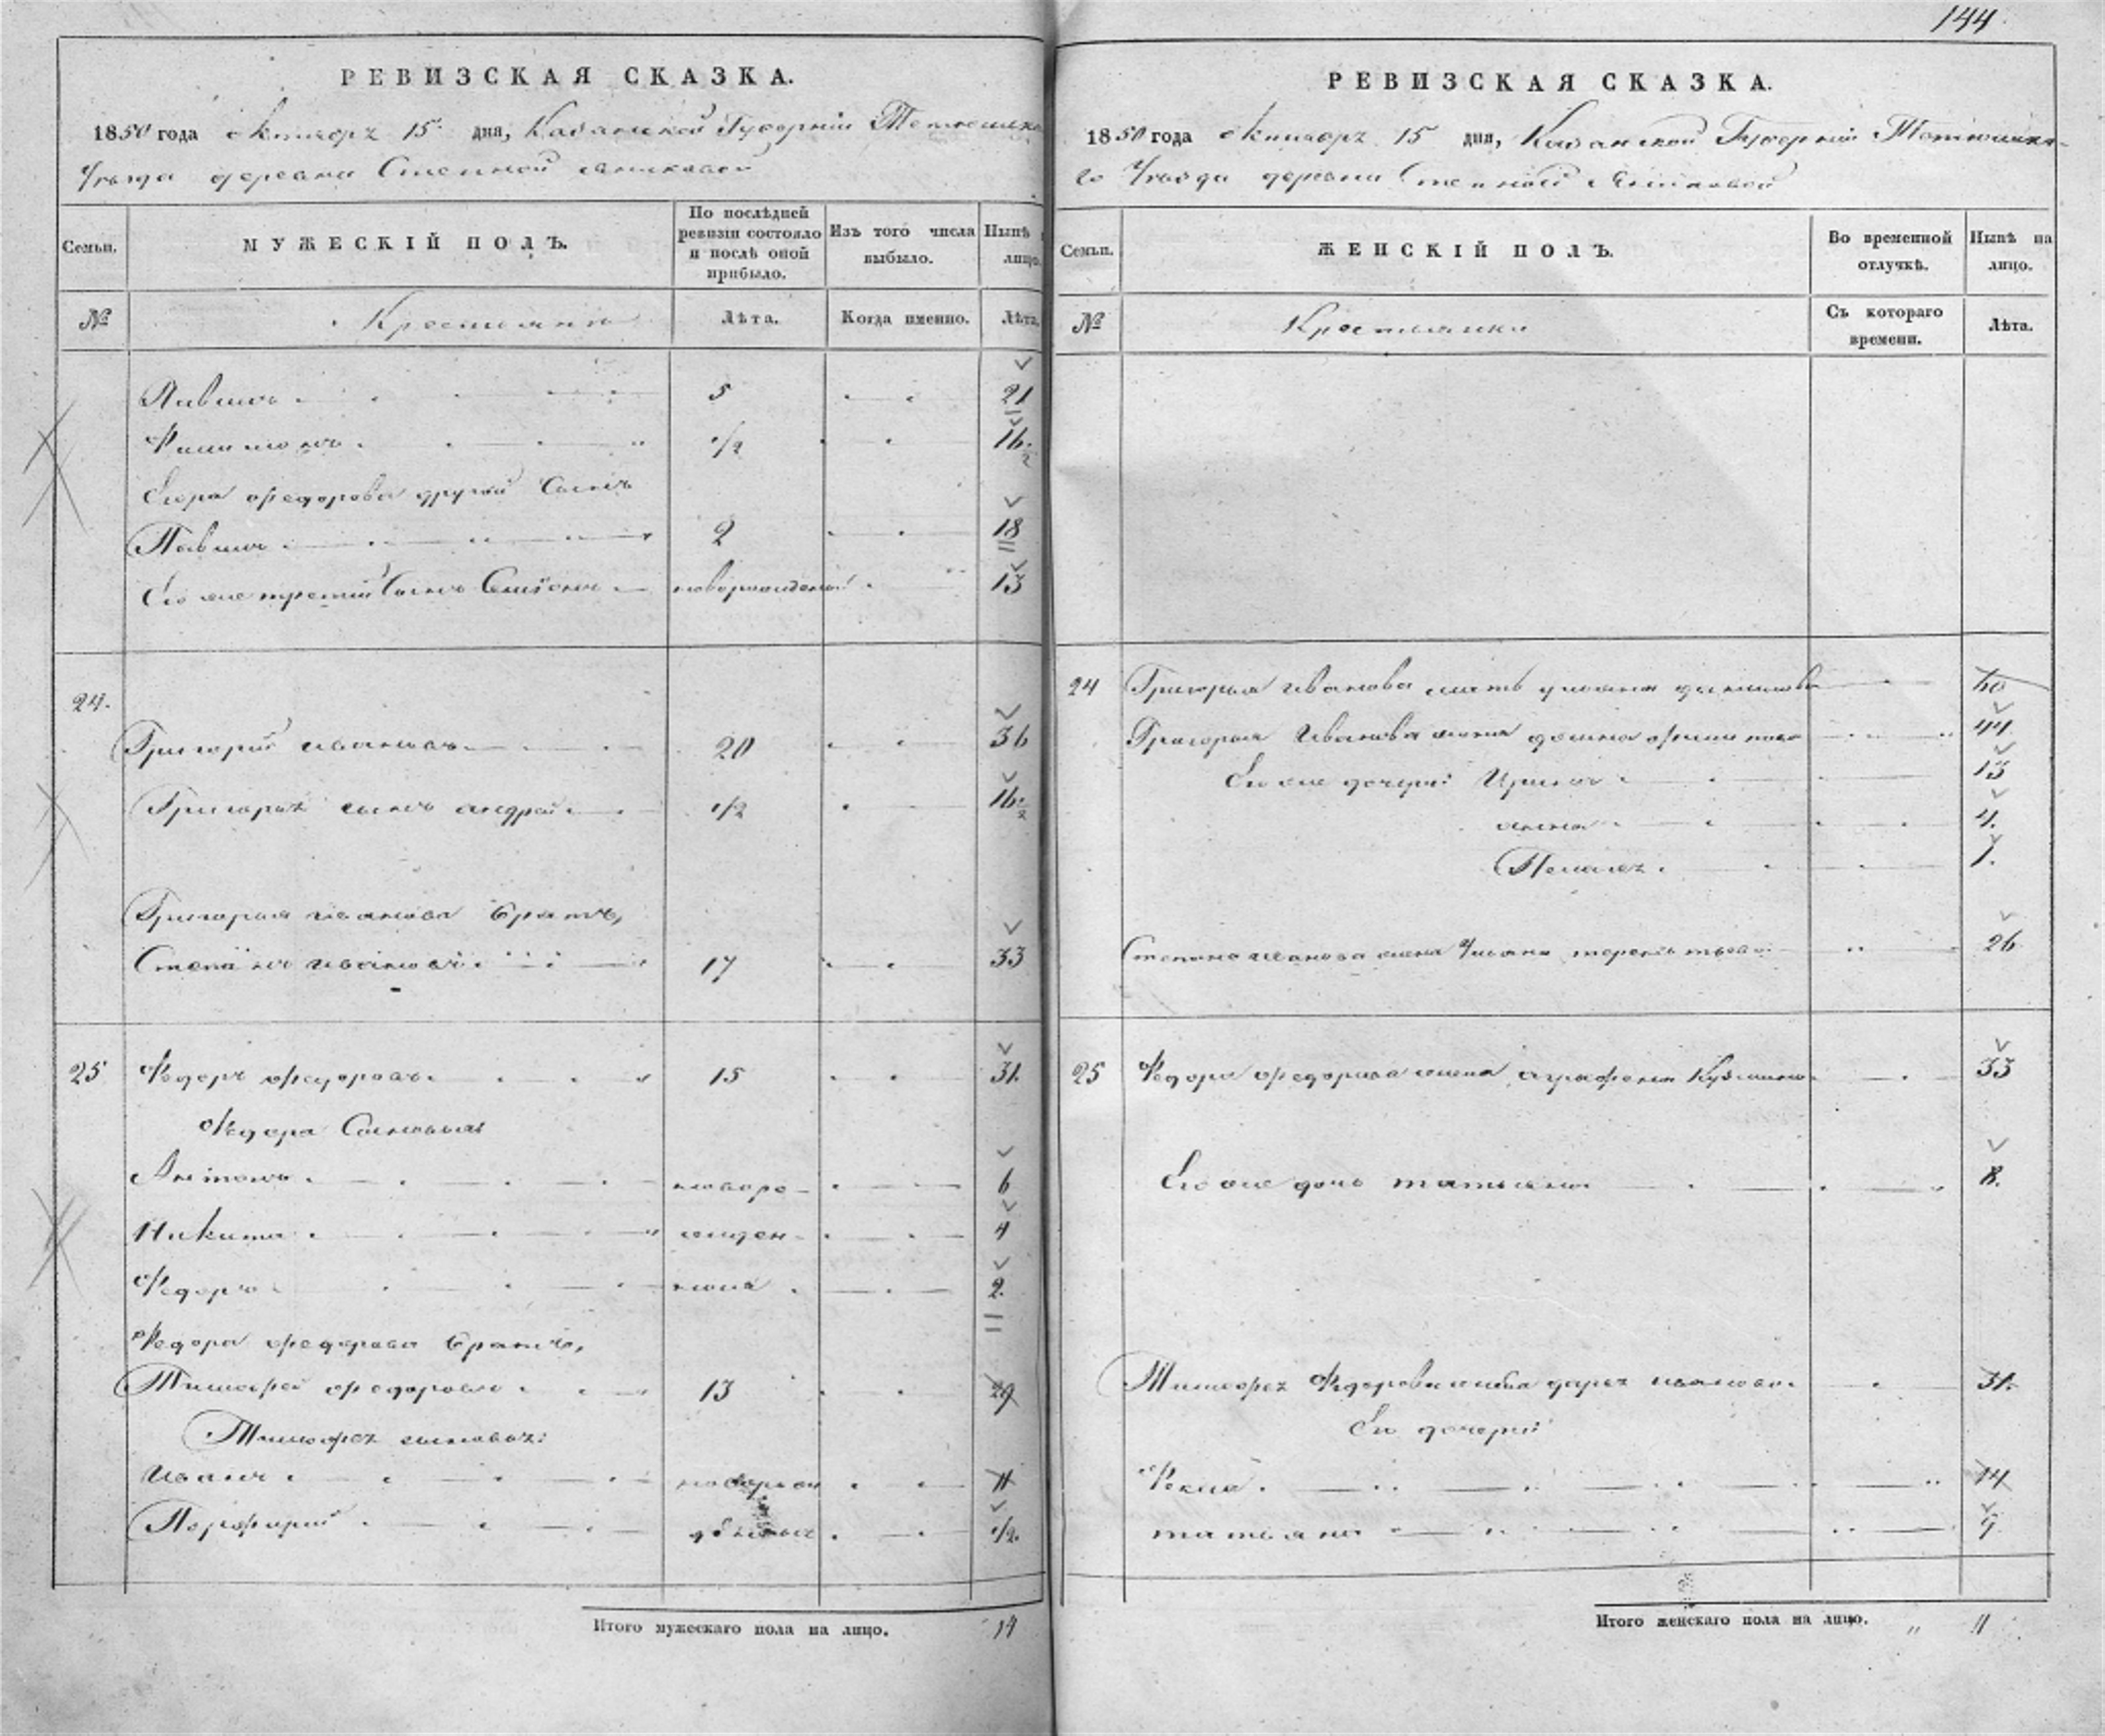 144.
РЕВИЗСКАЯ СКАЗКА.
1850 года октября 15 дня, Казанской Губерніи Тетюшска
Уезда деревни Степной
Семьи.
МУЖЕСКІЙ ПОЛЪ.
По послѣдней ревизіи состояло и послѣ оной прибыло.
Изъ того числа выбыло.
Нынѣ лицо.
№
Крестьяни
Лѣта.
Когда именно.
Лѣта.
Павелъ 5 21
Филимонъ 1/2 16 1/2
Егора Федорова другой Сынъ
Павелъ 2 18
Его же третій Сынъ Семіонъ новорожденый 13
24.
Григорій Ивановъ 20 36
Григорья сынъ андрей 1/2 16 1/2
Григорья иванова братъ,
Степанъ ивановъ 17 33
25 Федоръ федоровъ 15 31
Федора Сыновья
Антонъ новоро- 6
Никита жден- 4
Федоръ ныя 2
Федора федорова братъ,
Тимофей федоровъ 13 29
Тимофея сыновья:
Иванъ новорож 11
Порфирій денныя 1/2
Итого мужескаго пола на лицо. 14
РЕВИЗСКАЯ СКАЗКА.
1850 года октября 15 дня, Казанской Губерніи Тетюшска-
го Уезда деревни Степной
Семьи.
ЖЕНСКІЙ ПОЛЪ.
Во временной отлучкѣ.
Нынѣ на лицо.
№
Крестьянки
Съ котораго времени.
Лѣта.
24 Григорья иванова мать 60
Григорья Иванова жена домна 44
Его же дочери: Ирина 13
анна 4.
Пелагея 1.
Степана иванова жена Ульяна терентьева 26
25 Федора федорова жена аграфена Кузмина 33
Его же дочь татьяна 8.
Тимофея Федорова жена дарья иванова 31.
Его дочери
Фекла 14
татьяна 9
Итого женскаго пола на лицо. " 11